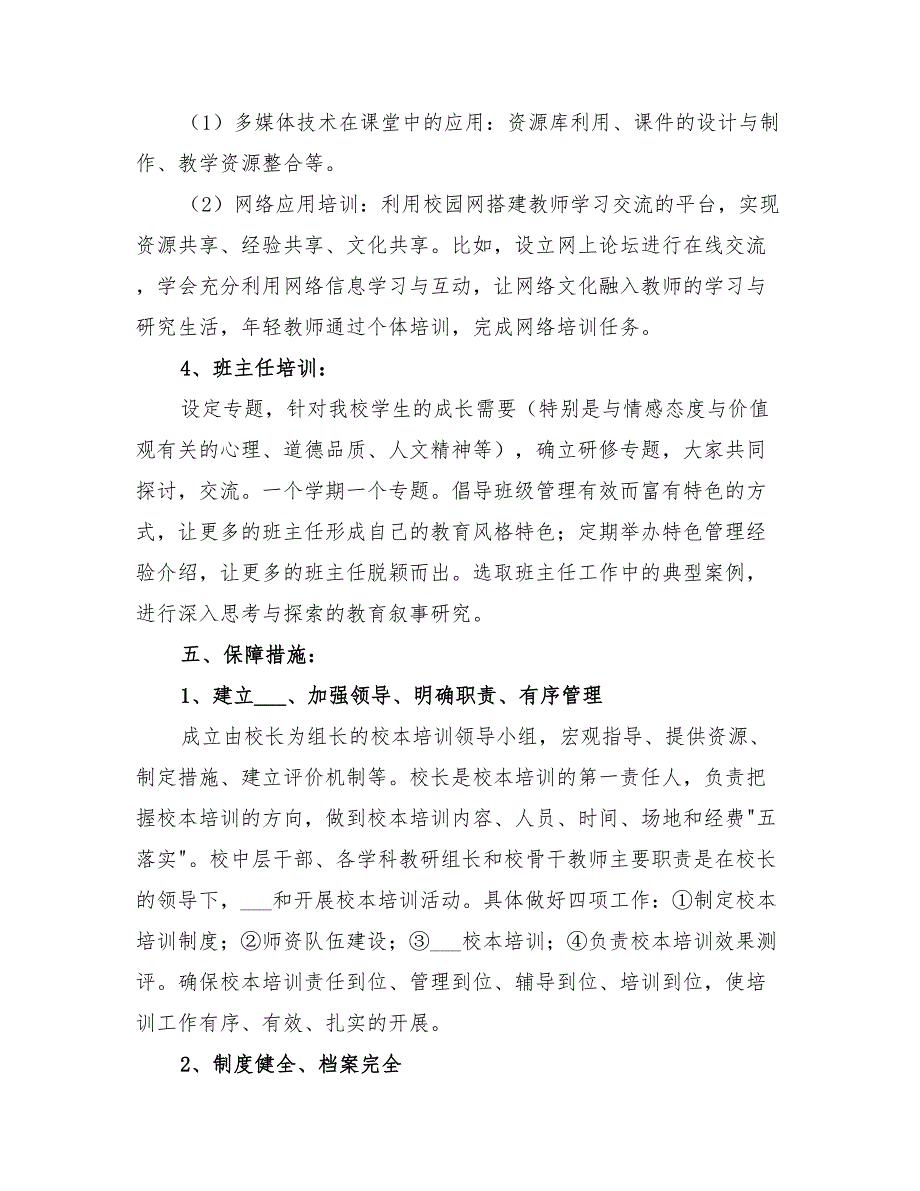 （1）多媒体技术在课堂中的应用：资源库利用、课件的设计与制
作、教学资源整合等。
（2）网络应用培训：利用校园网搭建教师学习交流的平台，实现
资源共享、经验共享、文化共享。比如，设立网上论坛进行在线交流
，学会充分利用网络信息学习与互动，让网络文化融入教师的学习与
研究生活，年轻教师通过个体培训，完成网络培训任务。
4、班主任培训：
设定专题，针对我校学生的成长需要（特别是与情感态度与价值
观有关的心理、道德品质、人文精神等），确立研修专题，大家共同
探讨，交流。一个学期一个专题。倡导班级管理有效而富有特色的方
式，让更多的班主任形成自己的教育风格特色；定期举办特色管理经
验介绍，让更多的班主任脱颖而出。选取班主任工作中的典型案例，
进行深入思考与探索的教育叙事研究。
五、保障措施：
1、建立___、加强领导、明确职责、有序管理
成立由校长为组长的校本培训领导小组，宏观指导、提供资源、
制定措施、建立评价机制等。校长是校本培训的第一责任人，负责把
握校本培训的方向，做到校本培训内容、人员、时间、场地和经费"五
落实"。校中层干部、各学科教研组长和校骨干教师主要职责是在校长
的领导下，___和开展校本培训活动。具体做好四项工作：①制定校本
培训制度；②师资队伍建设；③___校本培训；④负责校本培训效果测
评。确保校本培训责任到位、管理到位、辅导到位、培训到位，使培
训工作有序、有效、扎实的开展。
2、制度健全、档案完全